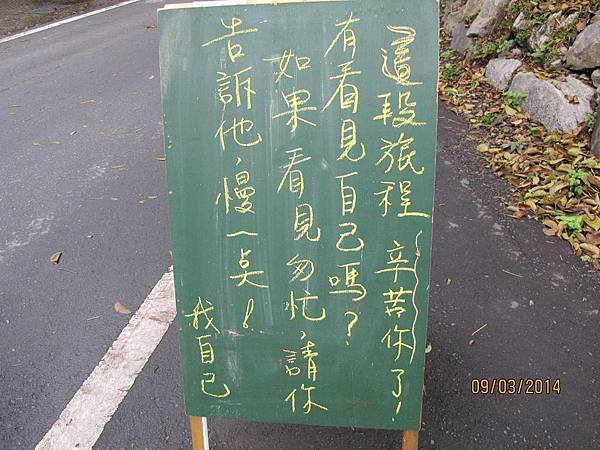 這段旅程辛苦你了！
有看見自己嗎？
如果看見匆忙，請你
告訴他，慢一点！
我自己
09/03/2014